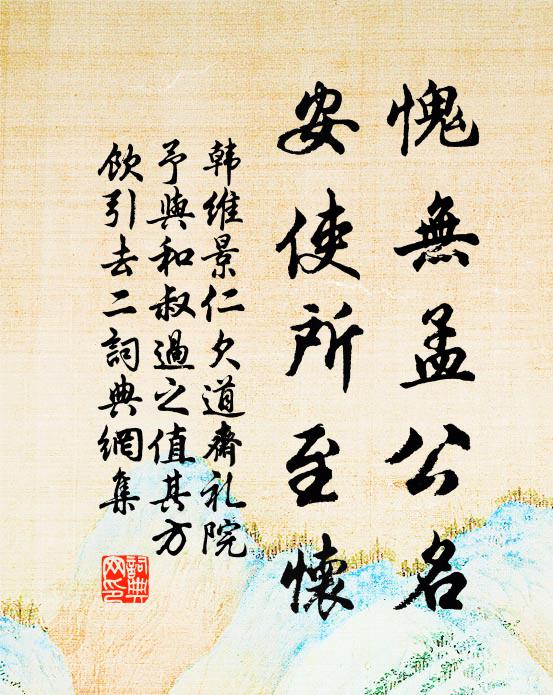 愧無孟公名
安使所至懷
韩維景仁久道齋礼院
予與和叔過之值其方
飲引去二詞典網集
詞典网印